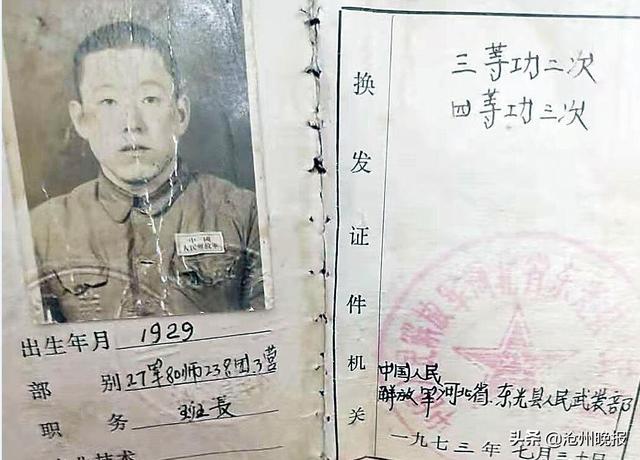 中國
人民解放軍
出生年月 1929
部 别 27军80师23名团3营
职 务 班長
三等功二次
四等功三次
换发证件机关
中国人民
解放军河北省东光县人民武装部
一九七三年七月三十日
头条 @沧州晚报